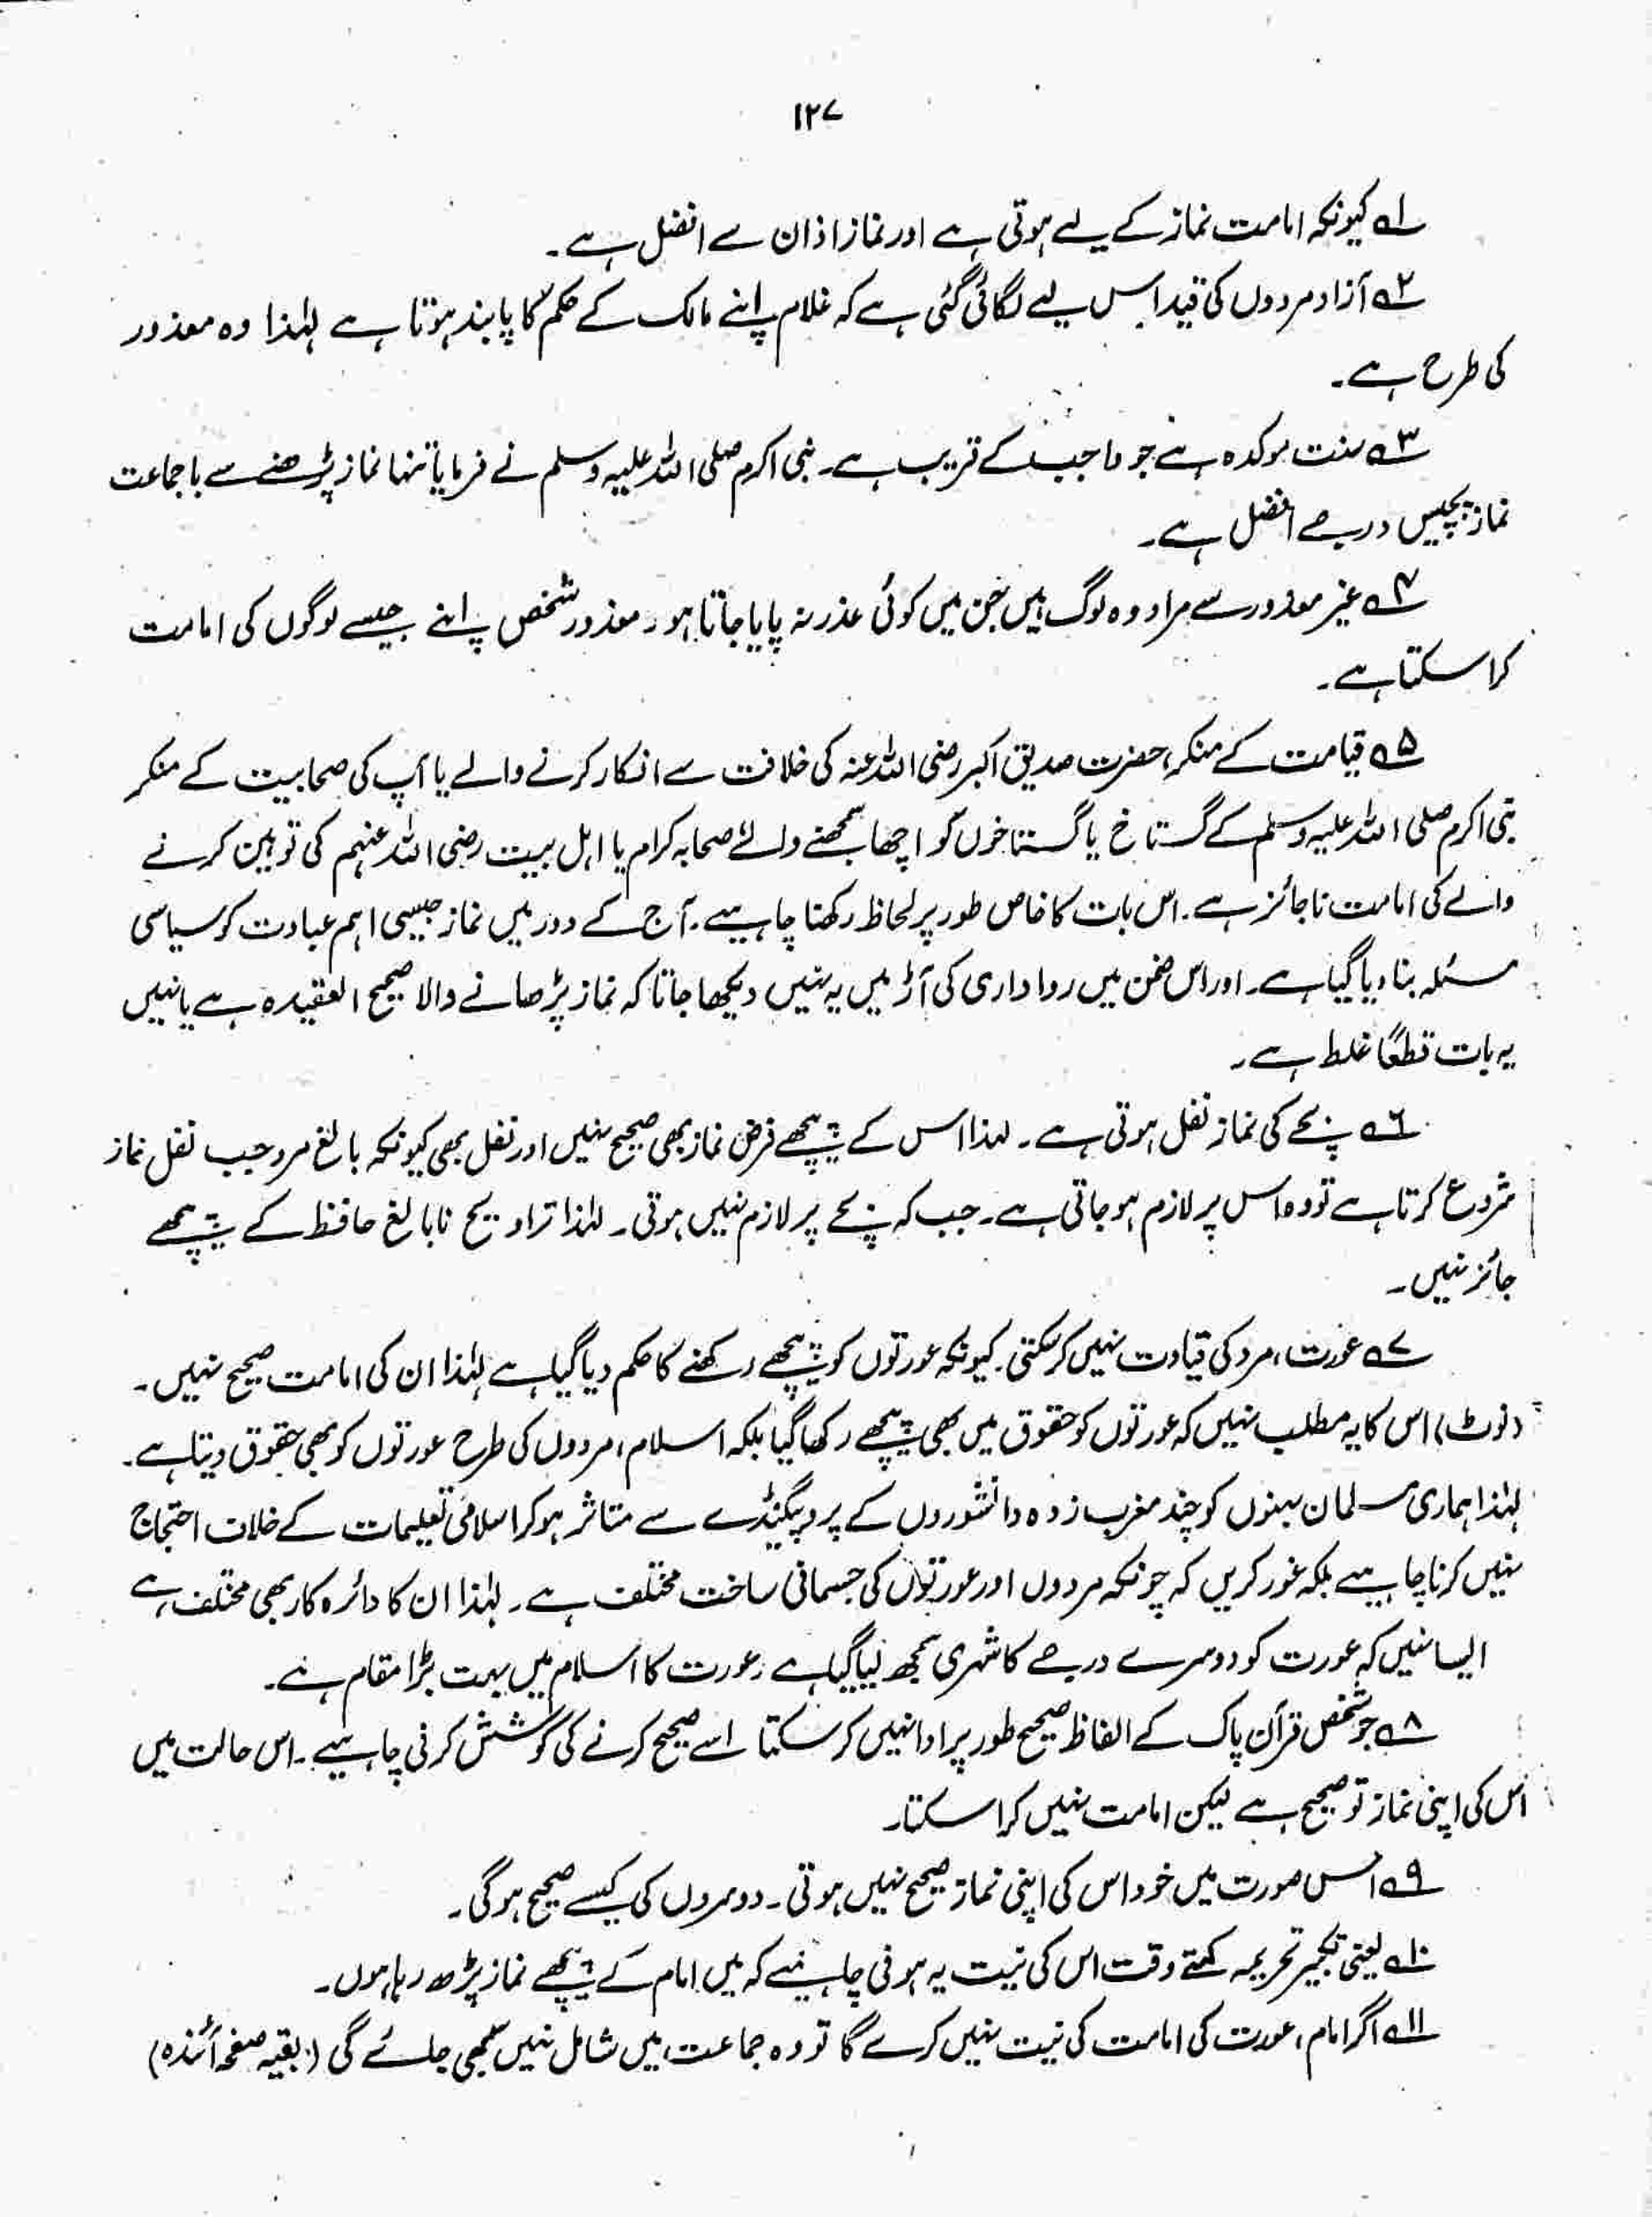 ۱۲۷
۱؎ کیونکہ امامت نماز کے لیے ہوتی ہے اور نماز اذان سے افضل ہے۔
۲؎ آزاد مردوں کی قید اس لیے لگائی گئی ہے کہ غلام اپنے مالک کے حکم کا پابند ہوتا ہے لہٰذا وہ معذور
کی طرح ہے۔
۳؎ سنت موکدہ ہے جو واجب کے قریب ہے۔ نبی اکرم صلی اللہ علیہ وسلم نے فرمایا تنہا نماز پڑھنے سے باجماعت
نماز پچیس درجے افضل ہے۔
۴؎ غیر معذور سے مراد وہ لوگ ہیں جن میں کوئی عذر نہ پایا جاتا ہو۔ معذور شخص اپنے جیسے لوگوں کی امامت
کرا سکتا ہے۔
۵؎ قیامت کے منکر، حضرت صدیق اکبر رضی اللہ عنہ کی خلافت سے انکار کرنے والے یا آپ کی صحابیت کے منکر
نبی اکرم صلی اللہ علیہ وسلم کے گستاخ یا گستاخوں کو اچھا سمجھنے والے صحابہ کرام یا اہل بیت رضی اللہ عنہم کی توہین کرنے
والے کی امامت ناجائز ہے۔ اس بات کا خاص طور پر لحاظ رکھنا چاہیے۔ آج کے دور میں نماز جیسی اہم عبادت کو سیاسی
مسئلہ بنا دیا گیا ہے۔ اور اس ضمن میں رواداری کی آڑ میں یہ نہیں دیکھا جاتا کہ نماز پڑھانے والا صحیح العقیدہ ہے یا نہیں
یہ بات قطعًا غلط ہے۔
۶؎ بچے کی نماز نفل ہوتی ہے۔ لہذا اس کے پیچھے فرض نماز بھی صحیح نہیں اور نفل بھی کیونکہ بالغ مرد جب نفل نماز
شروع کرتا ہے تو وہ اس پر لازم ہو جاتی ہے۔ جب کہ بچے پر لازم نہیں ہوتی۔ لہٰذا تراویح نابالغ حافظ کے پیچھے
جائز نہیں۔
۷؎ عورت، مرد کی قیادت نہیں کر سکتی۔ کیونکہ عورتوں کو پیچھے رکھنے کا حکم دیا گیا ہے لہٰذا ان کی امامت صحیح نہیں۔
(نوٹ) اس کا یہ مطلب نہیں کہ عورتوں کو حقوق میں بھی پیچھے رکھا گیا بلکہ اسلام، مردوں کی طرح عورتوں کو بھی حقوق دیتا ہے۔
لہٰذا ہماری مسلمان بہنوں کو چند مغرب زدہ دانشوروں کے پروپیگنڈے سے متاثر ہو کر اسلامی تعلیمات کے خلاف احتجاج
نہیں کرنا چاہیے بلکہ غور کریں کہ چونکہ مردوں اور عورتوں کی جسمانی ساخت مختلف ہے۔ لہٰذا ان کا دائرہ کار بھی مختلف ہے
ایسا نہیں کہ عورت کو دوسرے درجے کا شہری سمجھ لیا گیا ہے۔ عورت کا اسلام میں بہت بڑا مقام ہے۔
۸؎ جو شخص قرآن پاک کے الفاظ صحیح طور پر ادا نہیں کر سکتا اسے صحیح کرنے کی کوشش کرنی چاہیے۔ اس حالت میں
اس کی اپنی نماز تو صحیح ہے لیکن امامت نہیں کرا سکتا۔
۹؎ اس صورت میں خود اس کی اپنی نماز صحیح نہیں ہوتی۔ دوسروں کی کیسے صحیح ہوگی۔
۱۰؎ یعنی تکبیر تحریمہ کہتے وقت اس کی نیت یہ ہونی چاہئیے کہ میں امام کے پیچھے نماز پڑھ رہا ہوں۔
۱۱؎ اگر امام، عورت کی امامت کی نیت نہیں کرے گا تو وہ جماعت میں شامل نہیں سمجھی جائے گی (بقیہ صفحہ آئندہ)